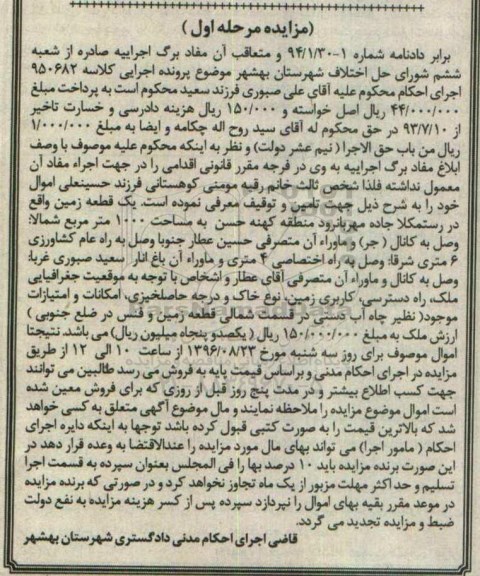 (مزایده مرحله اول)
برابر دادنامه شماره ۱-۹۴/۱/۳۰ و متعاقب آن مفاد برگ اجراییه صادره از شعبه
ششم شورای حل اختلاف شهرستان بهشهر موضوع پرونده اجرایی کلاسه ۹۵۰۶۸۲
اجرای احکام محکوم علیه آقای علی صبوری فرزند سعید محکوم است به پرداخت مبلغ
۴۴/۰۰۰/۰۰۰ ریال اصل خواسته و ۱۵۰/۰۰۰ ریال هزینه دادرسی و خسارت تاخیر
از ۹۳/۷/۱۰ در حق محکوم له آقای سید روح اله چکامه و ایضا به مبلغ ۱/۰۰۰/۰۰۰
ریال من باب حق الاجرا ( نیم عشر دولت) و نظر به اینکه محکوم علیه موصوف با وصف
ابلاغ مفاد برگ اجراییه به وی در فرجه مقرر قانونی اقدامی را در جهت اجراء مفاد آن
معمول نداشته فلذا شخص ثالث خانم رقیه مومنی کوهستانی فرزند حسینعلی اموال
خود را به شرح ذیل جهت تامین و توقیف معرفی نموده است. یک قطعه زمین واقع
در رستمکلا جاده مهربانرود منطقه کهنه حسن به مساحت ۱۰۰۰ متر مربع شمالا:
وصل به کانال ( جر) و ماوراء آن متصرفی حسین عطار جنوبا وصل به راه عام کشاورزی
۶ متری شرقا: وصل به راه اختصاصی ۴ متری و ماوراء آن باغ انار سعید صبوری غربا:
وصل به کانال و ماوراء آن متصرفی آقای عطار و اشخاص با توجه به موقعیت جغرافیایی
ملک، راه دسترسی، کاربری زمین، نوع خاک و درجه حاصلخیزی، امکانات و امتیازات
موجود( نظیر چاه آب دستی در قسمت شمالی قطعه زمین و فنس در ضلع جنوبی )
ارزش ملک به مبلغ ۱۵۰/۰۰۰/۰۰۰ ریال ( یکصدو پنجاه میلیون ریال) می باشد. نتیجتا
اموال موصوف برای روز سه شنبه مورخ ۱۳۹۶/۰۸/۲۳ از ساعت ۱۰ الی ۱۲ از طریق
مزایده در اجرای احکام مدنی و براساس قیمت پایه به فروش می رسد طالبین می توانند
جهت کسب اطلاع بیشتر و در مدت پنج روز قبل از روزی که برای فروش معین شده
است اموال موضوع مزایده را ملاحظه نمایند و مال موضوع آگهی متعلق به کسی خواهد
شد که بالاترین قیمت را به صورت کتبی قبول کرده باشد توجها به اینکه دایره اجرای
احکام ( مامور اجرا) می تواند بهای مال مورد مزایده را عندالاقتضا به وعده قرار دهد در
این صورت برنده مزایده باید ۱۰ درصد بها را فی المجلس بعنوان سپرده به قسمت اجرا
تسلیم و حداکثر مهلت مزبور از یک ماه تجاوز نخواهد کرد و در صورتی که برنده مزایده
در موعد مقرر بقیه بهای اموال را نپردازد سپرده پس از کسر هزینه مزایده به نفع دولت
ضبط و مزایده تجدید می گردد.
قاضی اجرای احکام مدنی دادگستری شهرستان بهشهر